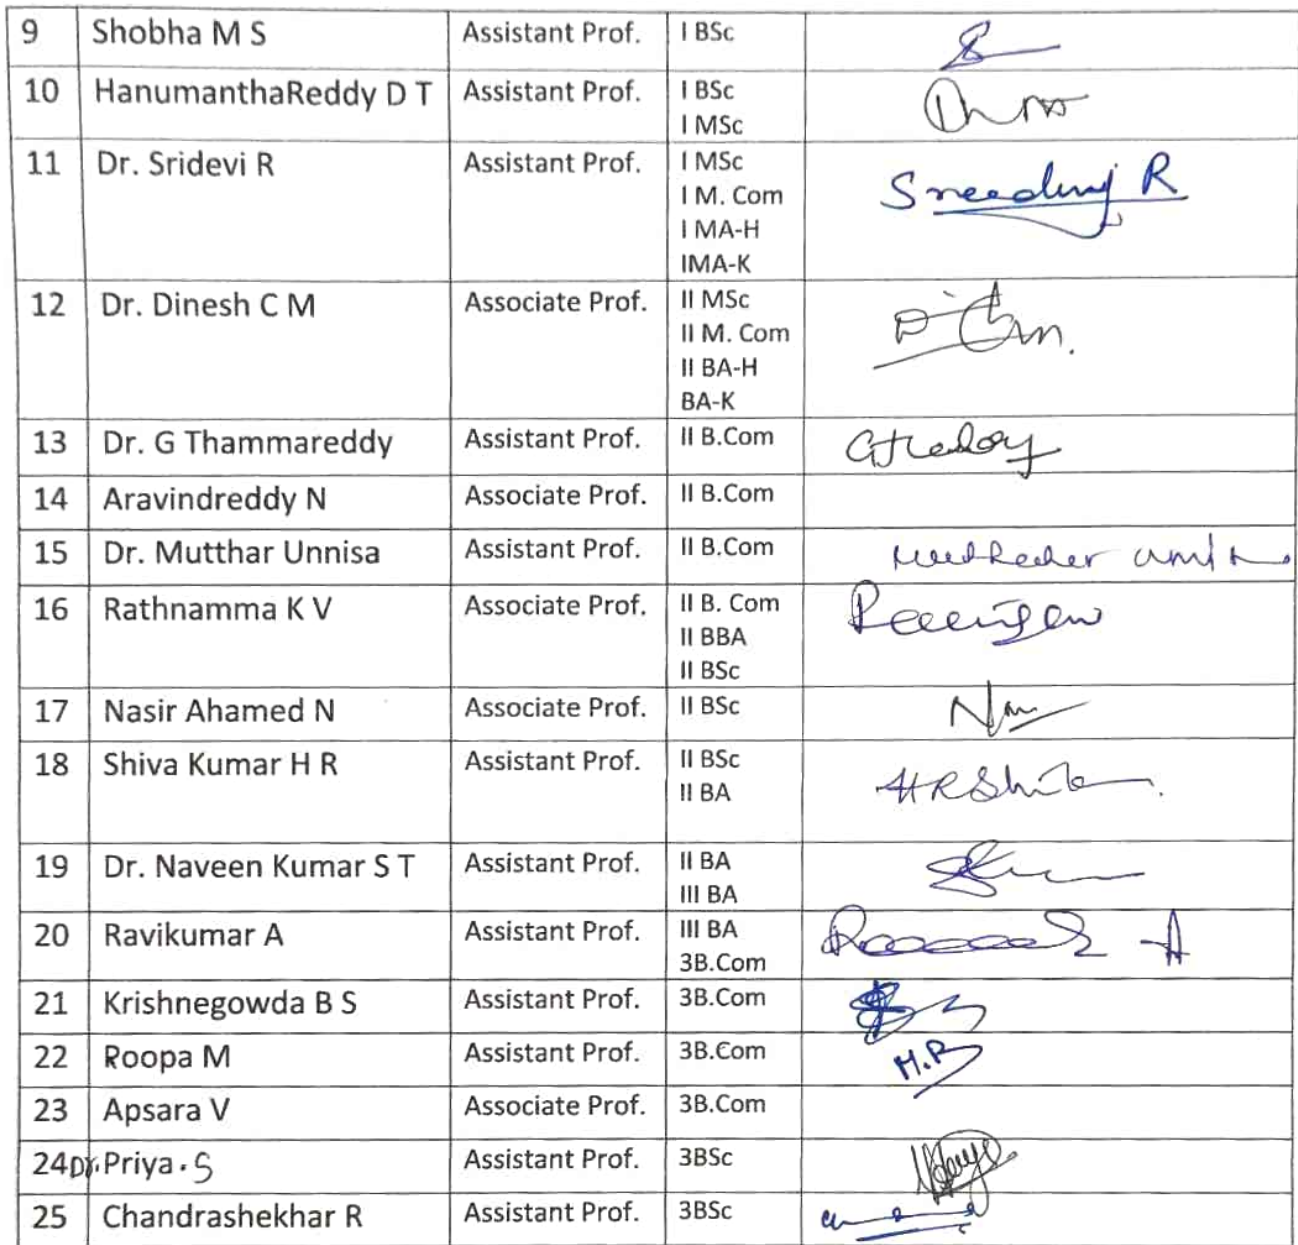 9 Shobha M S Assistant Prof. I BSc
10 HanumanthaReddy D T Assistant Prof. I BSc
I MSc
11 Dr. Sridevi R Assistant Prof. I MSc
I M. Com
I MA-H
IMA-K
12 Dr. Dinesh C M Associate Prof. II MSc
II M. Com
II BA-H
BA-K
13 Dr. G Thammareddy Assistant Prof. II B.Com
14 Aravindreddy N Associate Prof. II B.Com
15 Dr. Mutthar Unnisa Assistant Prof. II B.Com
16 Rathnamma K V Associate Prof. II B. Com
II BBA
II BSc
17 Nasir Ahamed N Associate Prof. II BSc
18 Shiva Kumar H R Assistant Prof. II BSc
II BA
19 Dr. Naveen Kumar S T Assistant Prof. II BA
III BA
20 Ravikumar A Assistant Prof. III BA
3B.Com
21 Krishnegowda B S Assistant Prof. 3B.Com
22 Roopa M Assistant Prof. 3B.Com M.R
23 Apsara V Associate Prof. 3B.Com
24 Dr. Priya . S Assistant Prof. 3BSc
25 Chandrashekhar R Assistant Prof. 3BSc